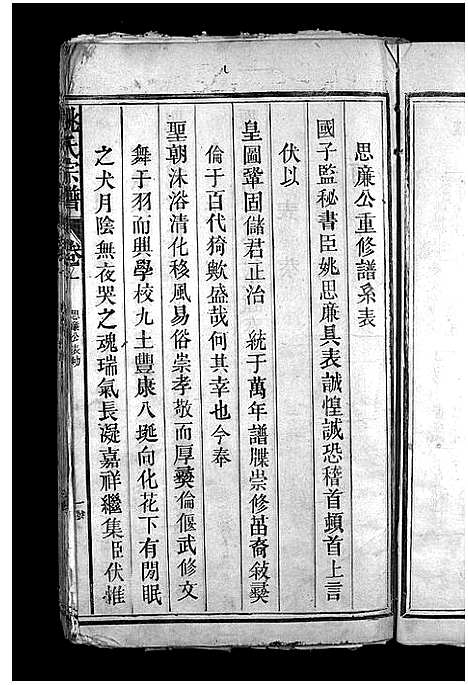 思廉公重修譜系表
國子監秘書臣姚思廉具表誠惶誠恐稽首頓首上言
伏以
皇圖鞏固儲君正治 統于萬年譜牒崇修苗裔敍彛
倫于百代猗歟盛哉何其幸也今奉
聖朝沐浴清化移風易俗崇孝敬而厚彛倫偃武修文
舞于羽而興學校九土豐康八埏向化花下有閒眠
之犬月陰無夜哭之魂瑞氣長凝嘉祥繼集臣伏惟
姚氏宗譜
卷之
思廉公表